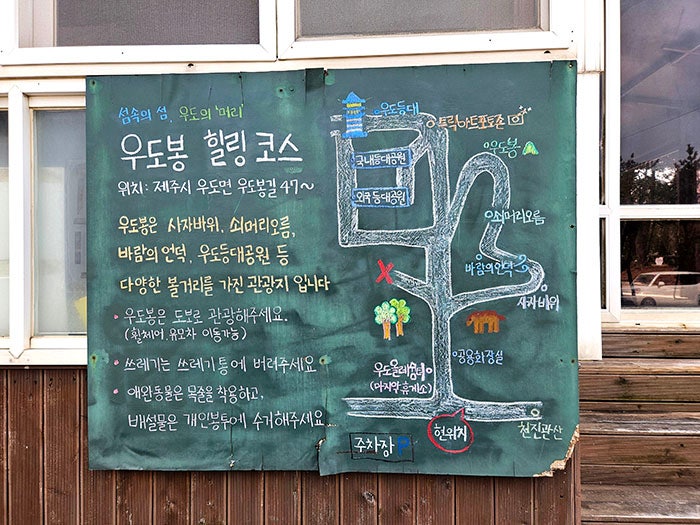 섬속의 섬, 우도의 '머리'
우도봉 힐링 코스
위치: 제주시 우도면 우도봉길 47~
우도봉은 사자바위, 쇠머리오름,
바람의언덕, 우도등대공원 등
다양한 볼거리를 가진 관광지 입니다
• 우도봉은 도보로 관광해주세요.
(휠체어, 유모차 이동가능)
• 쓰레기는 쓰레기통에 버려주세요
• 애완동물은 목줄을 착용하고,
배설물은 개인봉투에 수거해주세요
우도등대
하트포토존
우도봉
국내등대공원
외국등대공원
쇠머리오름
바람의언덕
사자바위
X
공용화장실
우도올레쉼터
(마지막 휴게소)
현위치
천진관산
주차장 P